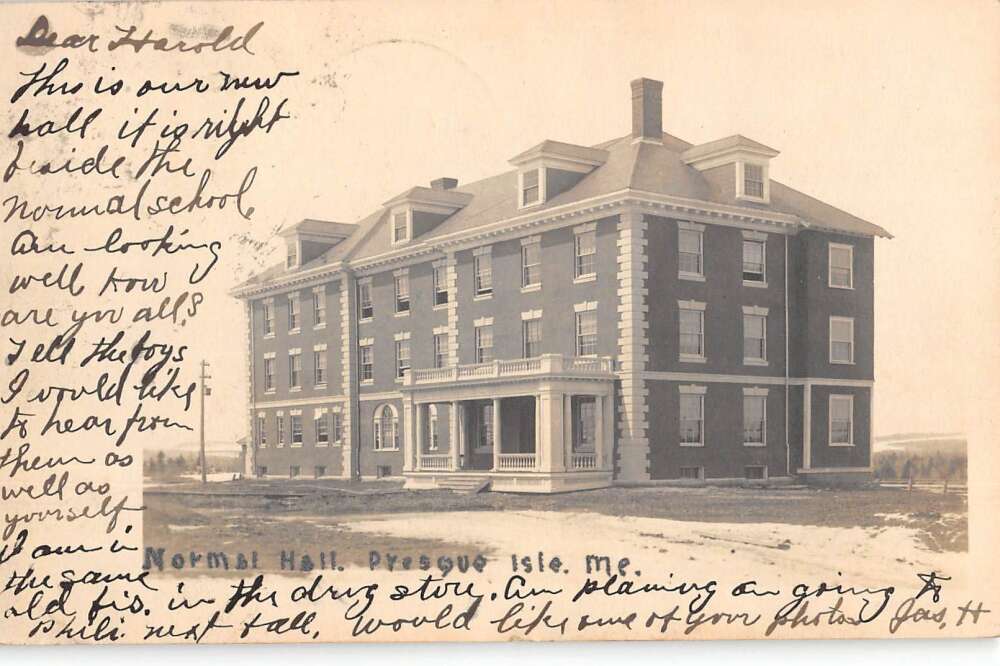 Dear Harold
This is our new
hall it is right
beside the
Normal school
Am looking
well How
are you all?
Tell the boys
I would like
to hear from
them as
well as
yourself
I am in
Normal Hall. Presque Isle. Me.
the same
old biz. in the drug store. Am planing on going to
Phili next fall, would like one of your photos Jas, H